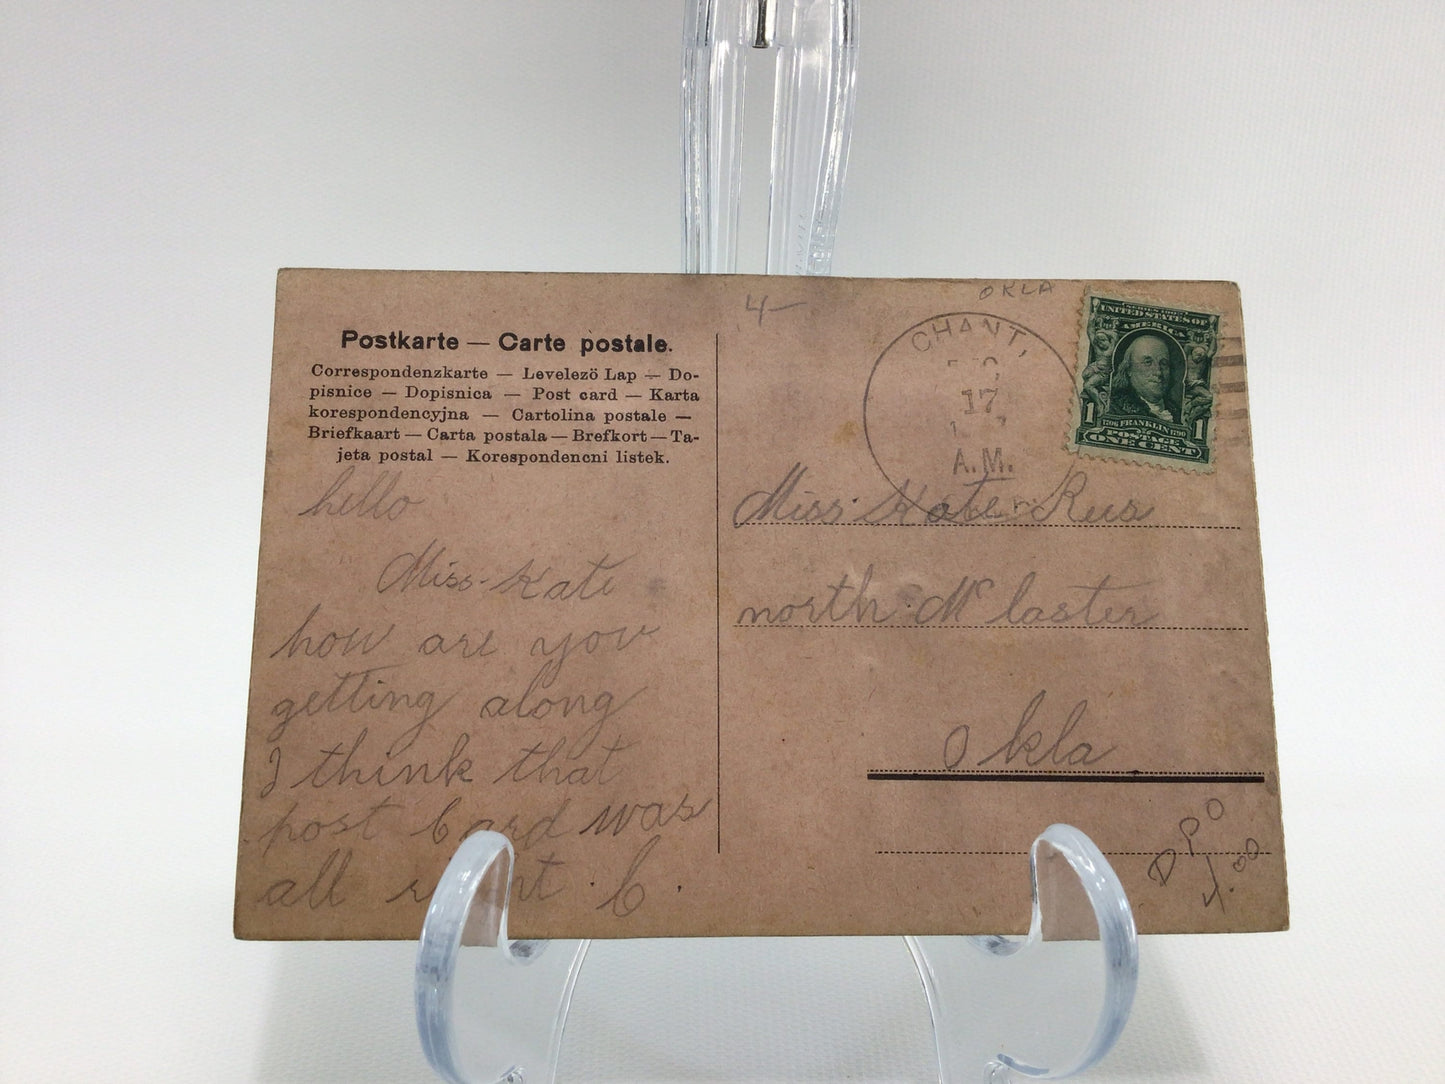 Postkarte — Carte postale.
Correspondenzkarte — Levelezö Lap — Do-
pisnice — Dopisnica — Post card — Karta
korespondencyjna — Cartolina postale —
Briefkaart — Carta postala — Brefkort — Ta-
jeta postal — Korespondencni listek.
hello
Miss. Kate
how are you
getting along
I think that
post Card was
all . C.
4—
OKLA
CHANT,
17
A.M.
SERIES 1902
UNITED STATES OF
AMERICA
1706 FRANKLIN 1790
1 POSTAGE 1
ONE CENT
Miss. Kate Rus
north Mc laster
Okla
DPO
4.00